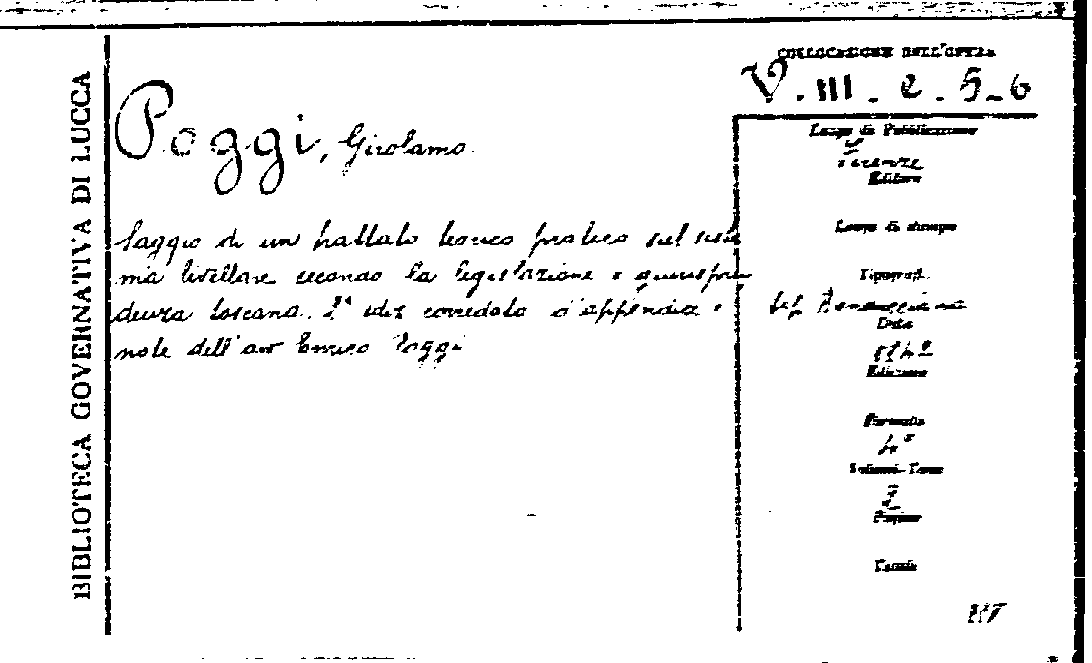 BIBLIOTECA GOVERNATIVA DI LUCCA
COLLOCAZIONE DELL'OPERA
V. III. e. 5-6
Poggi, Girolamo
Saggio di un trattato teorico pratico sul siste
ma livellare secondo la legislazione e giurispru
denza toscana. 2ª ediz corredata d'appendice e
note dell'avv Enrico Poggi
Luogo di Pubblicazione
Firenze
Editore
Luogo di stampa
Tipograf.
tip. Bonducciana
Data
Edizione
Formato
Volumi-Tomi
2
Pagine
Tavole